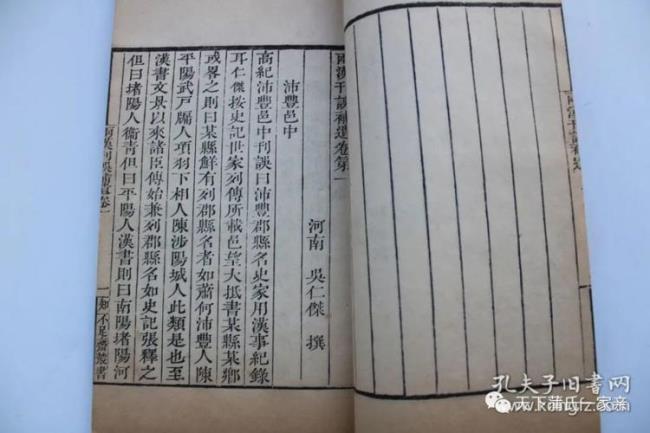 兩漢刊誤補遺卷第一
河南 吳仁傑 撰
沛豐邑中
高紀沛豐邑中刊誤曰沛豐郡縣名史家用漢事紀錄
耳仁傑按史記世家列傳所載邑望大抵書某縣某鄉
或畧之則曰某縣鮮有列郡縣名者如蕭何沛豐人陳
平陽武戶牖人項羽下相人陳涉陽城人此類是也至
漢書文景以來諸臣傳始兼列郡縣名如史記張釋之
但曰堵陽人衞青但曰平陽人漢書則曰南陽堵陽河
兩漢刊誤補遺卷一
一
知不足齋叢書
孔夫子旧书网
天下蒲氏一家亲